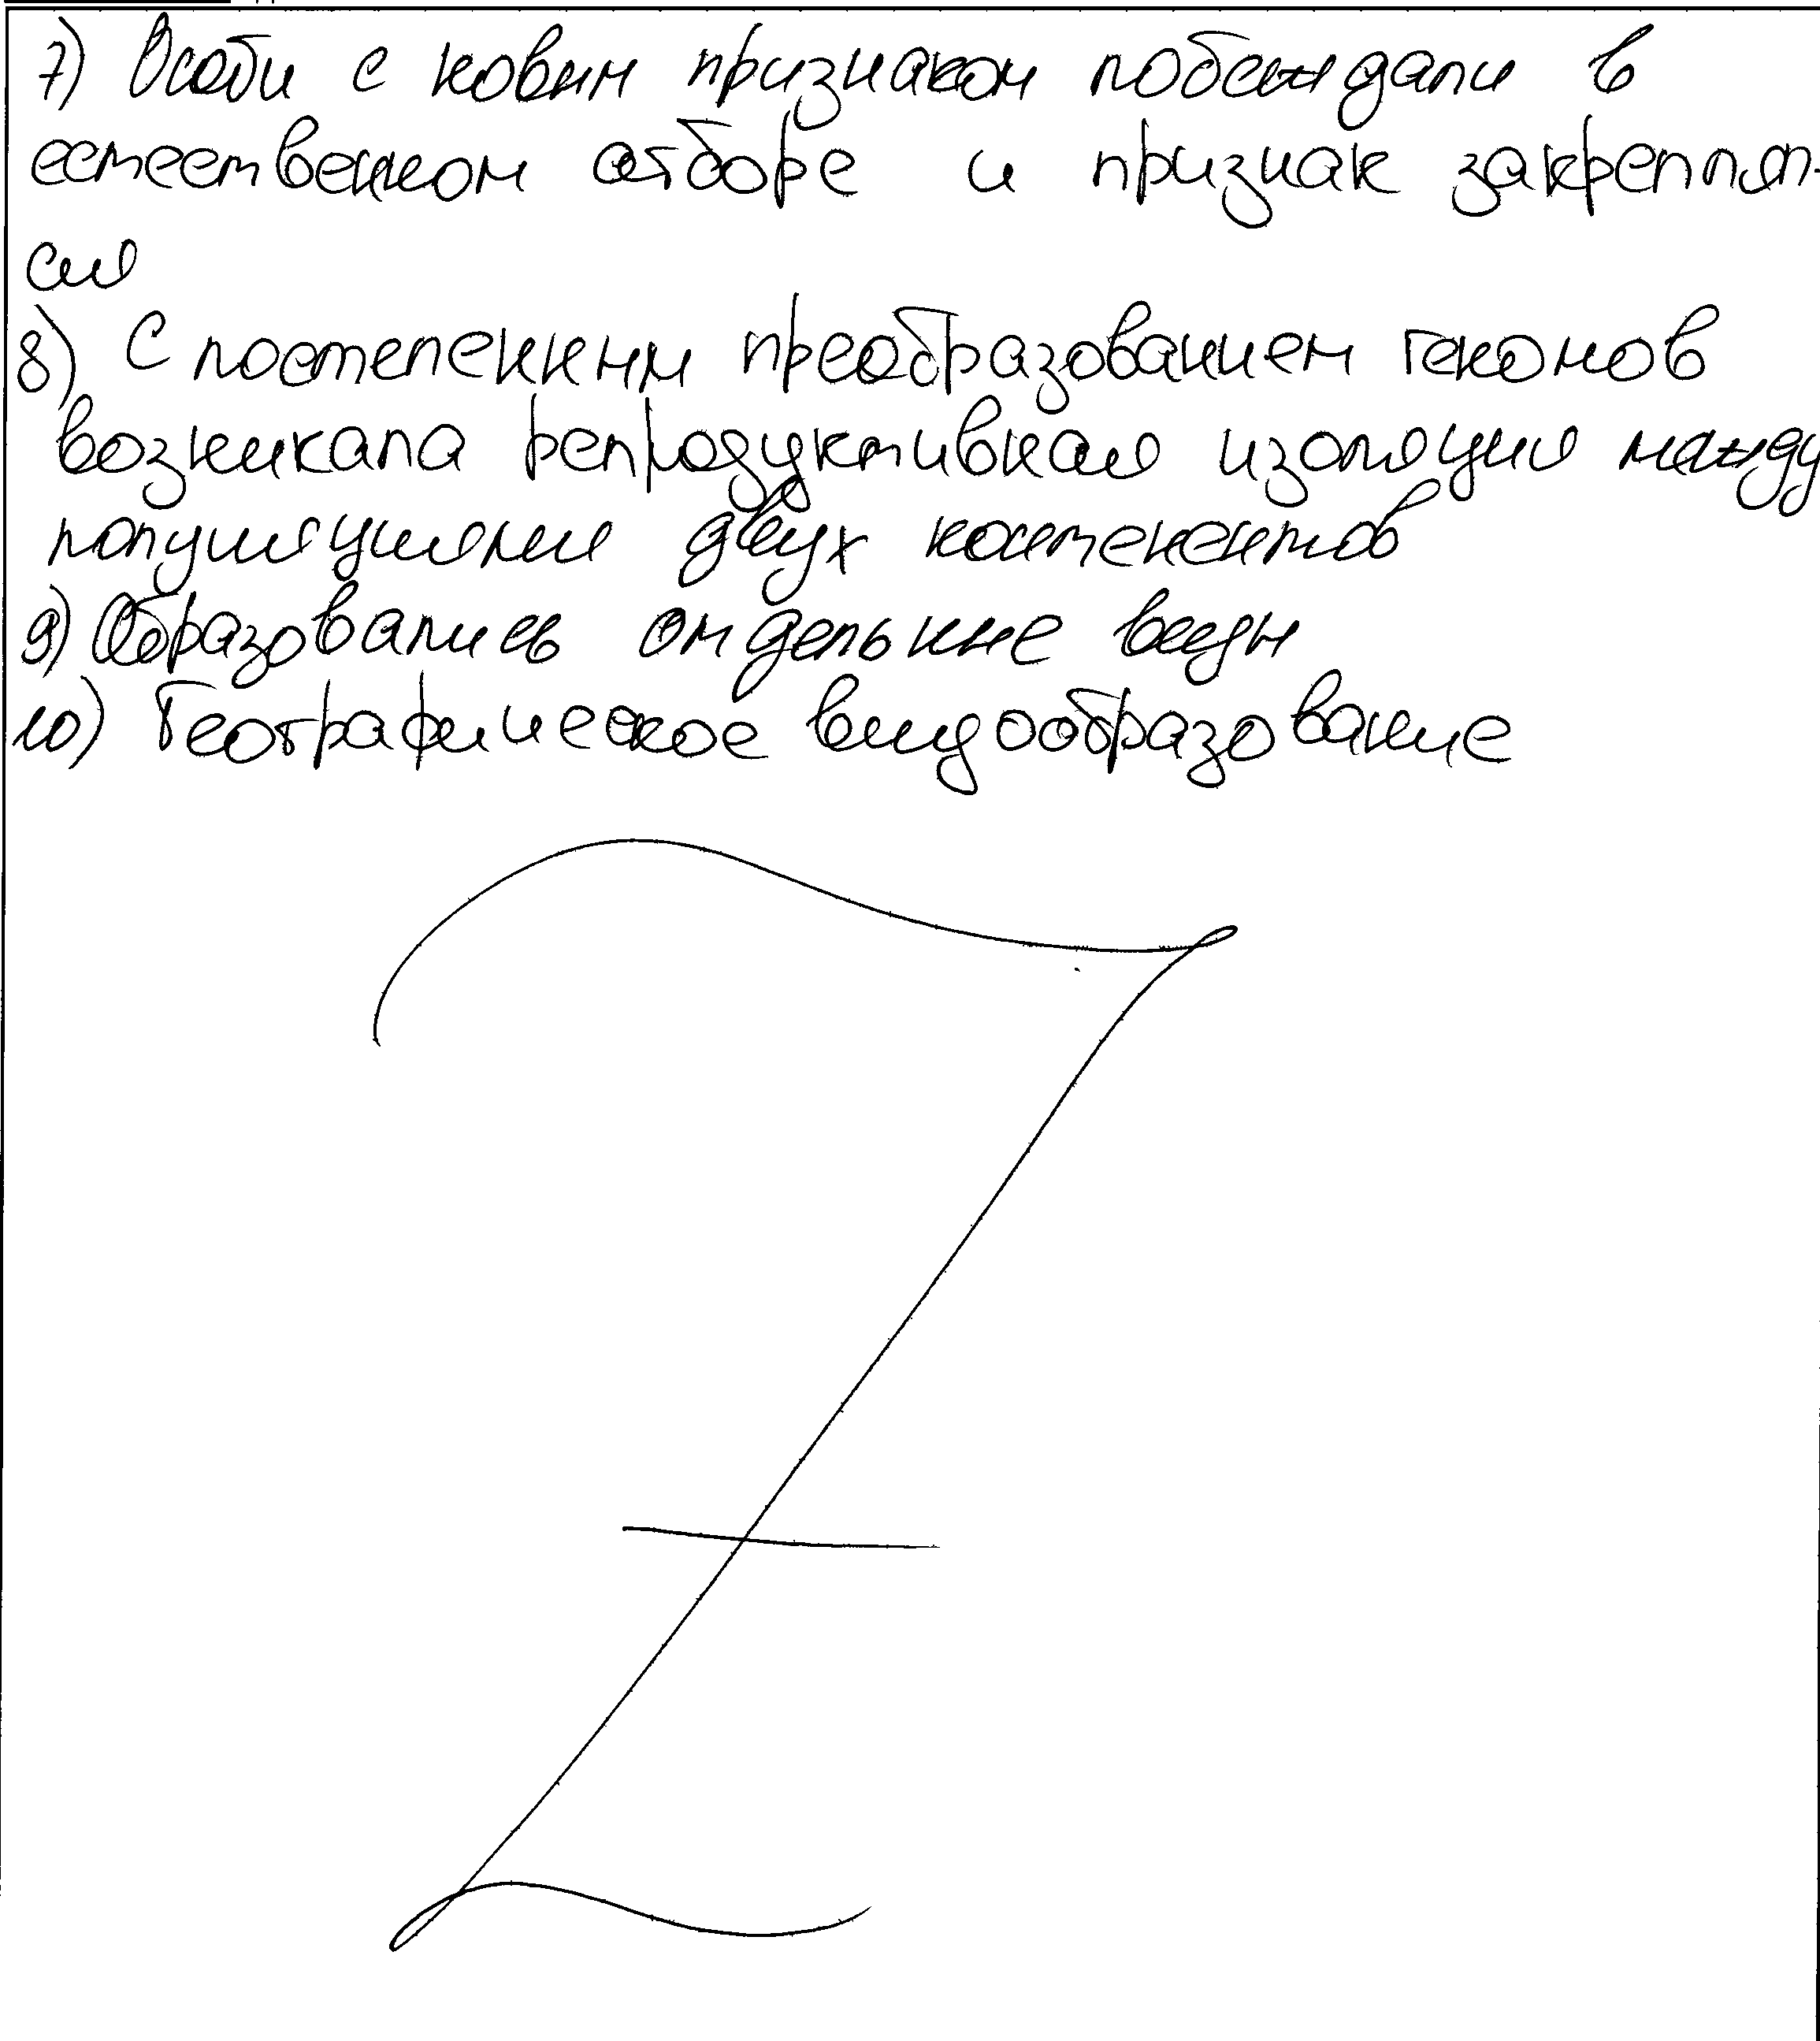 7) Особи с новым признаком побеждали в
естественном отборе и признак закреплял-
ся
8) С постепенным преобразованием геномов
возникала репродуктивная изоляция между
популяциями двух континентов
9) Образовались отдельные виды
10) Географическое видообразование